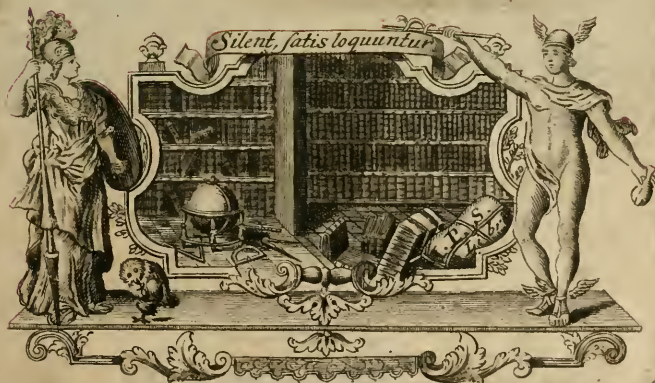 Silent, satis loquuntur